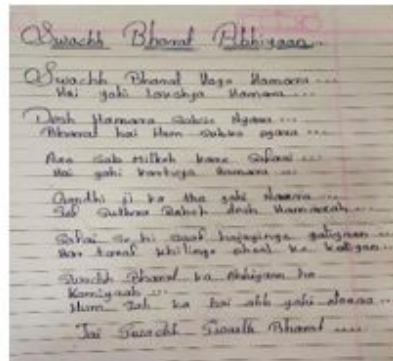 Swachh Bharat Abhiyaan..
Swachh Bharat Hoga Hamara ...
Hai yahi Lakshya Hamara ...
Desh Hamara Sabse Nyara ...
Bharat hai Hum Sabko pyara ...
Aao Sab Milkeh kare Safaai ...
Hai yahi kartavya Hamara ...
Gandhi ji ka tha yahi Naara ...
Saf Suthra Raheh desh Hamaarah ...
Safai se hi saaf hojayinge galiyaan ...
Har taraf khilinge phool ke kaliyan ...
Swachh Bharat ka Abhiyaan ho
Kamiyaab ...
Hum Sab ka hai abb yahi Naara ...
Jai Swachh Bharat ....